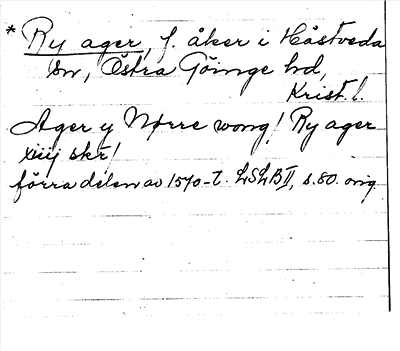 * Ry ager, f. åker i Håstveda
sn, Östra Göinge hd,
Krist l.
Ager y Nørre wong! Ry ager
xiij skr!
förra delen av 1570-t. LSLB II, s. 80. orig.